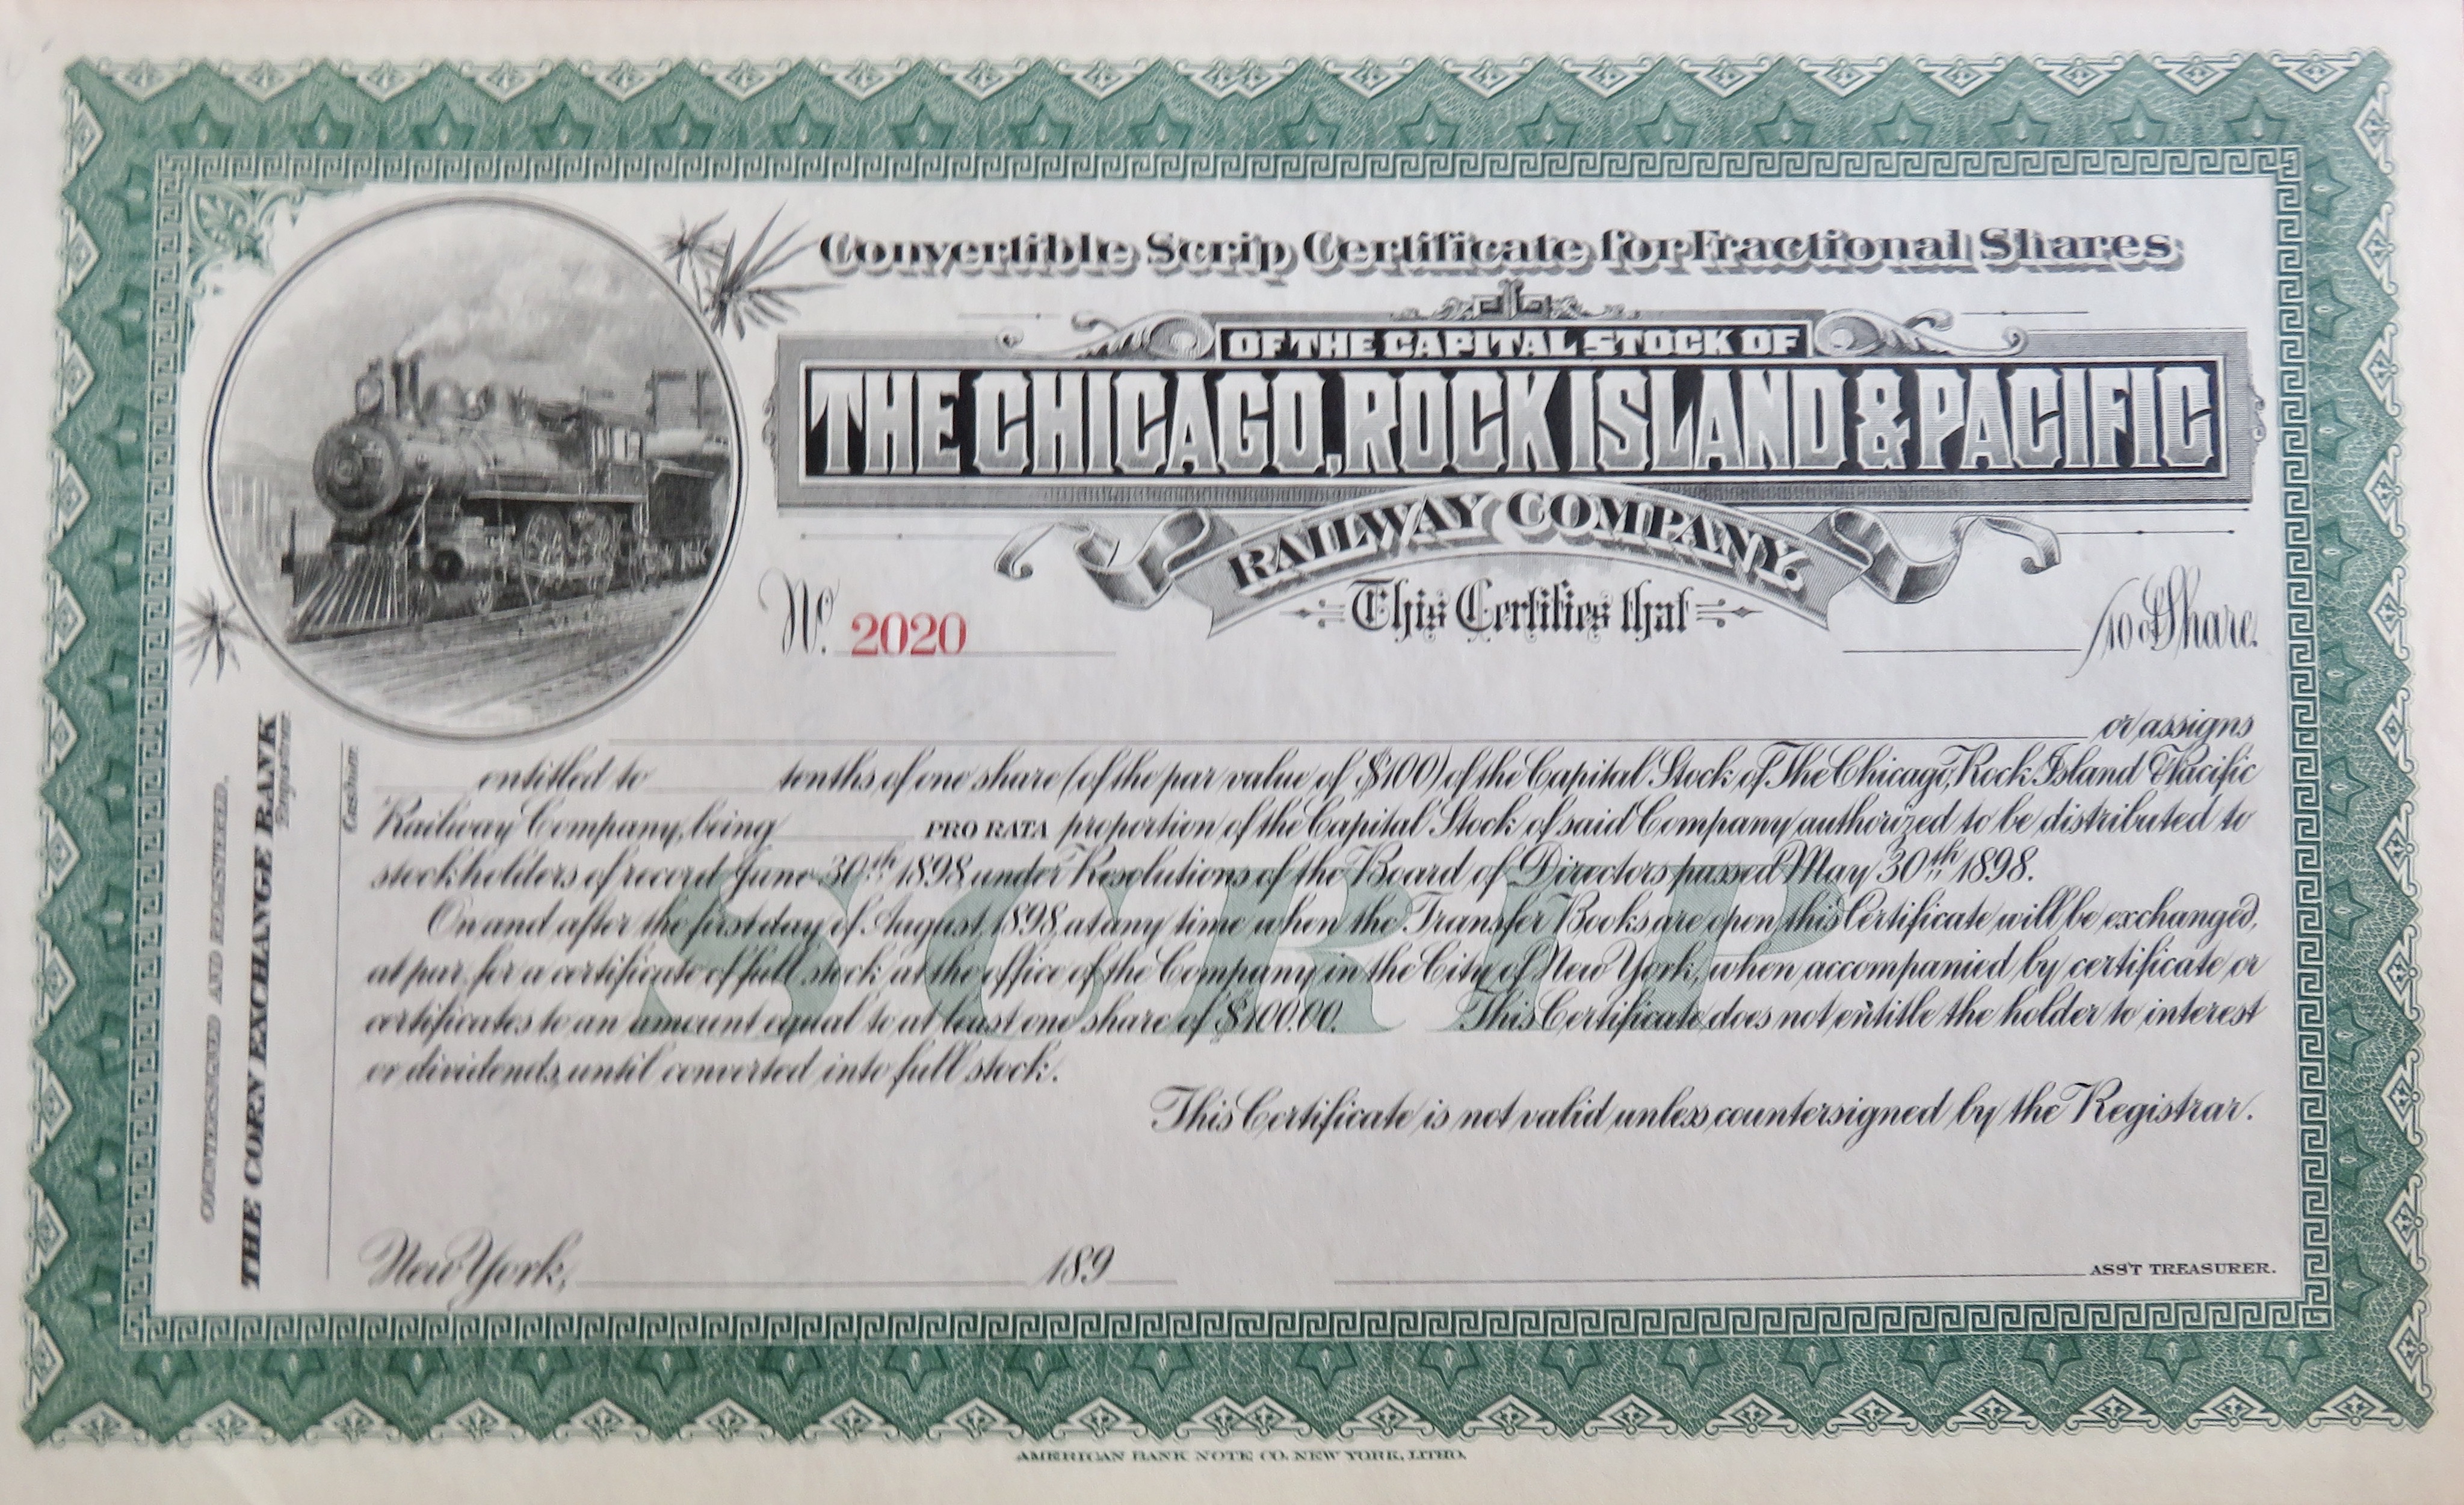 Convertible Scrip Certificate for Fractional Shares
OF THE CAPITAL STOCK OF
THE CHICAGO, ROCK ISLAND & PACIFIC
RAILWAY COMPANY.
No. 2020
This Certifies that
/10 of Share.
or assigns
entitled to tenths of one share (of the par value of $100) of the Capital Stock of The Chicago, Rock Island & Pacific
Railway Company, being PRO RATA proportion of the Capital Stock of said Company authorized to be distributed to
stockholders of record June 30th 1898, under Resolutions of the Board of Directors passed May 30th 1898.
On and after the first day of August, 1898, at any time when the Transfer Books are open, this Certificate will be exchanged,
at par, for a certificate of full stock at the office of the Company in the City of New York, when accompanied by certificate or
certificates to an amount equal to at least one share of $100.00. This Certificate does not entitle the holder to interest
or dividends, until converted into full stock.
SCRIP
This Certificate is not valid unless countersigned by the Registrar.
New York, 189
ASST TREASURER.
COUNTERSIGNED AND REGISTERED.
THE CORN EXCHANGE BANK
Registrar.
Cashier.
AMERICAN BANK NOTE CO. NEW YORK, LITHO.